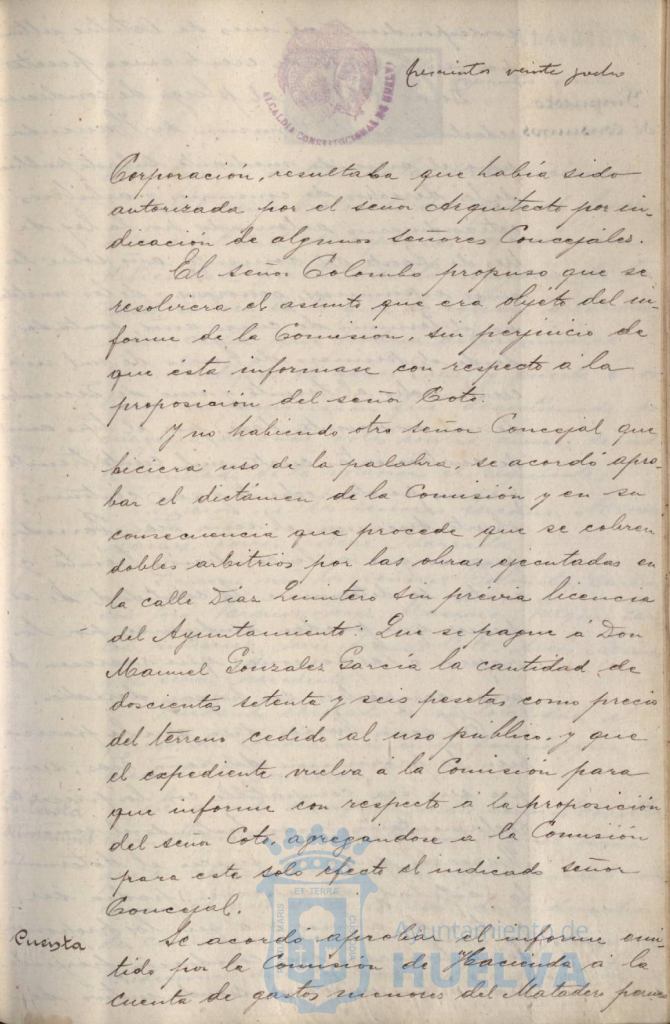 trescientos veinte
ALCALDIA CONSTITUCIONAL DE HUELVA
Corporación, resultaba que había sido
autorizada por el señor Arquitecto por in-
dicación de algunos señores Concejales.
El señor Colombo propuso que se
resolviera el asunto que era objeto del in-
forme de la Comisión, sin perjuicio de
que ésta informase con respecto á la
proposición del señor Coto.
Y no habiendo otro señor Concejal que
hiciera uso de la palabra, se acordó apro-
bar el dictámen de la Comisión y en su
consecuencia que procede que se cobren
dobles arbitrios por las obras ejecutadas en
la calle Díaz Quintero sin prévia licencia
del Ayuntamiento: Que se pague á Don
Manuel Gonzalez García la cantidad de
doscientas setenta y seis pesetas como precio
del terreno cedido al uso público, y que
el expediente vuelva á la Comisión para
que informe con respecto á la proposición
del señor Coto, agregándose á la Comisión
para este solo efecto el indicado señor
Concejal.
Cuenta
Se acordó aprobar el informe emi-
tido por la Comisión de Hacienda á la
cuenta de gastos menores del Matadero
ET TERRA
MARIS
CUSTODIA
Ayuntamiento de
HUELVA